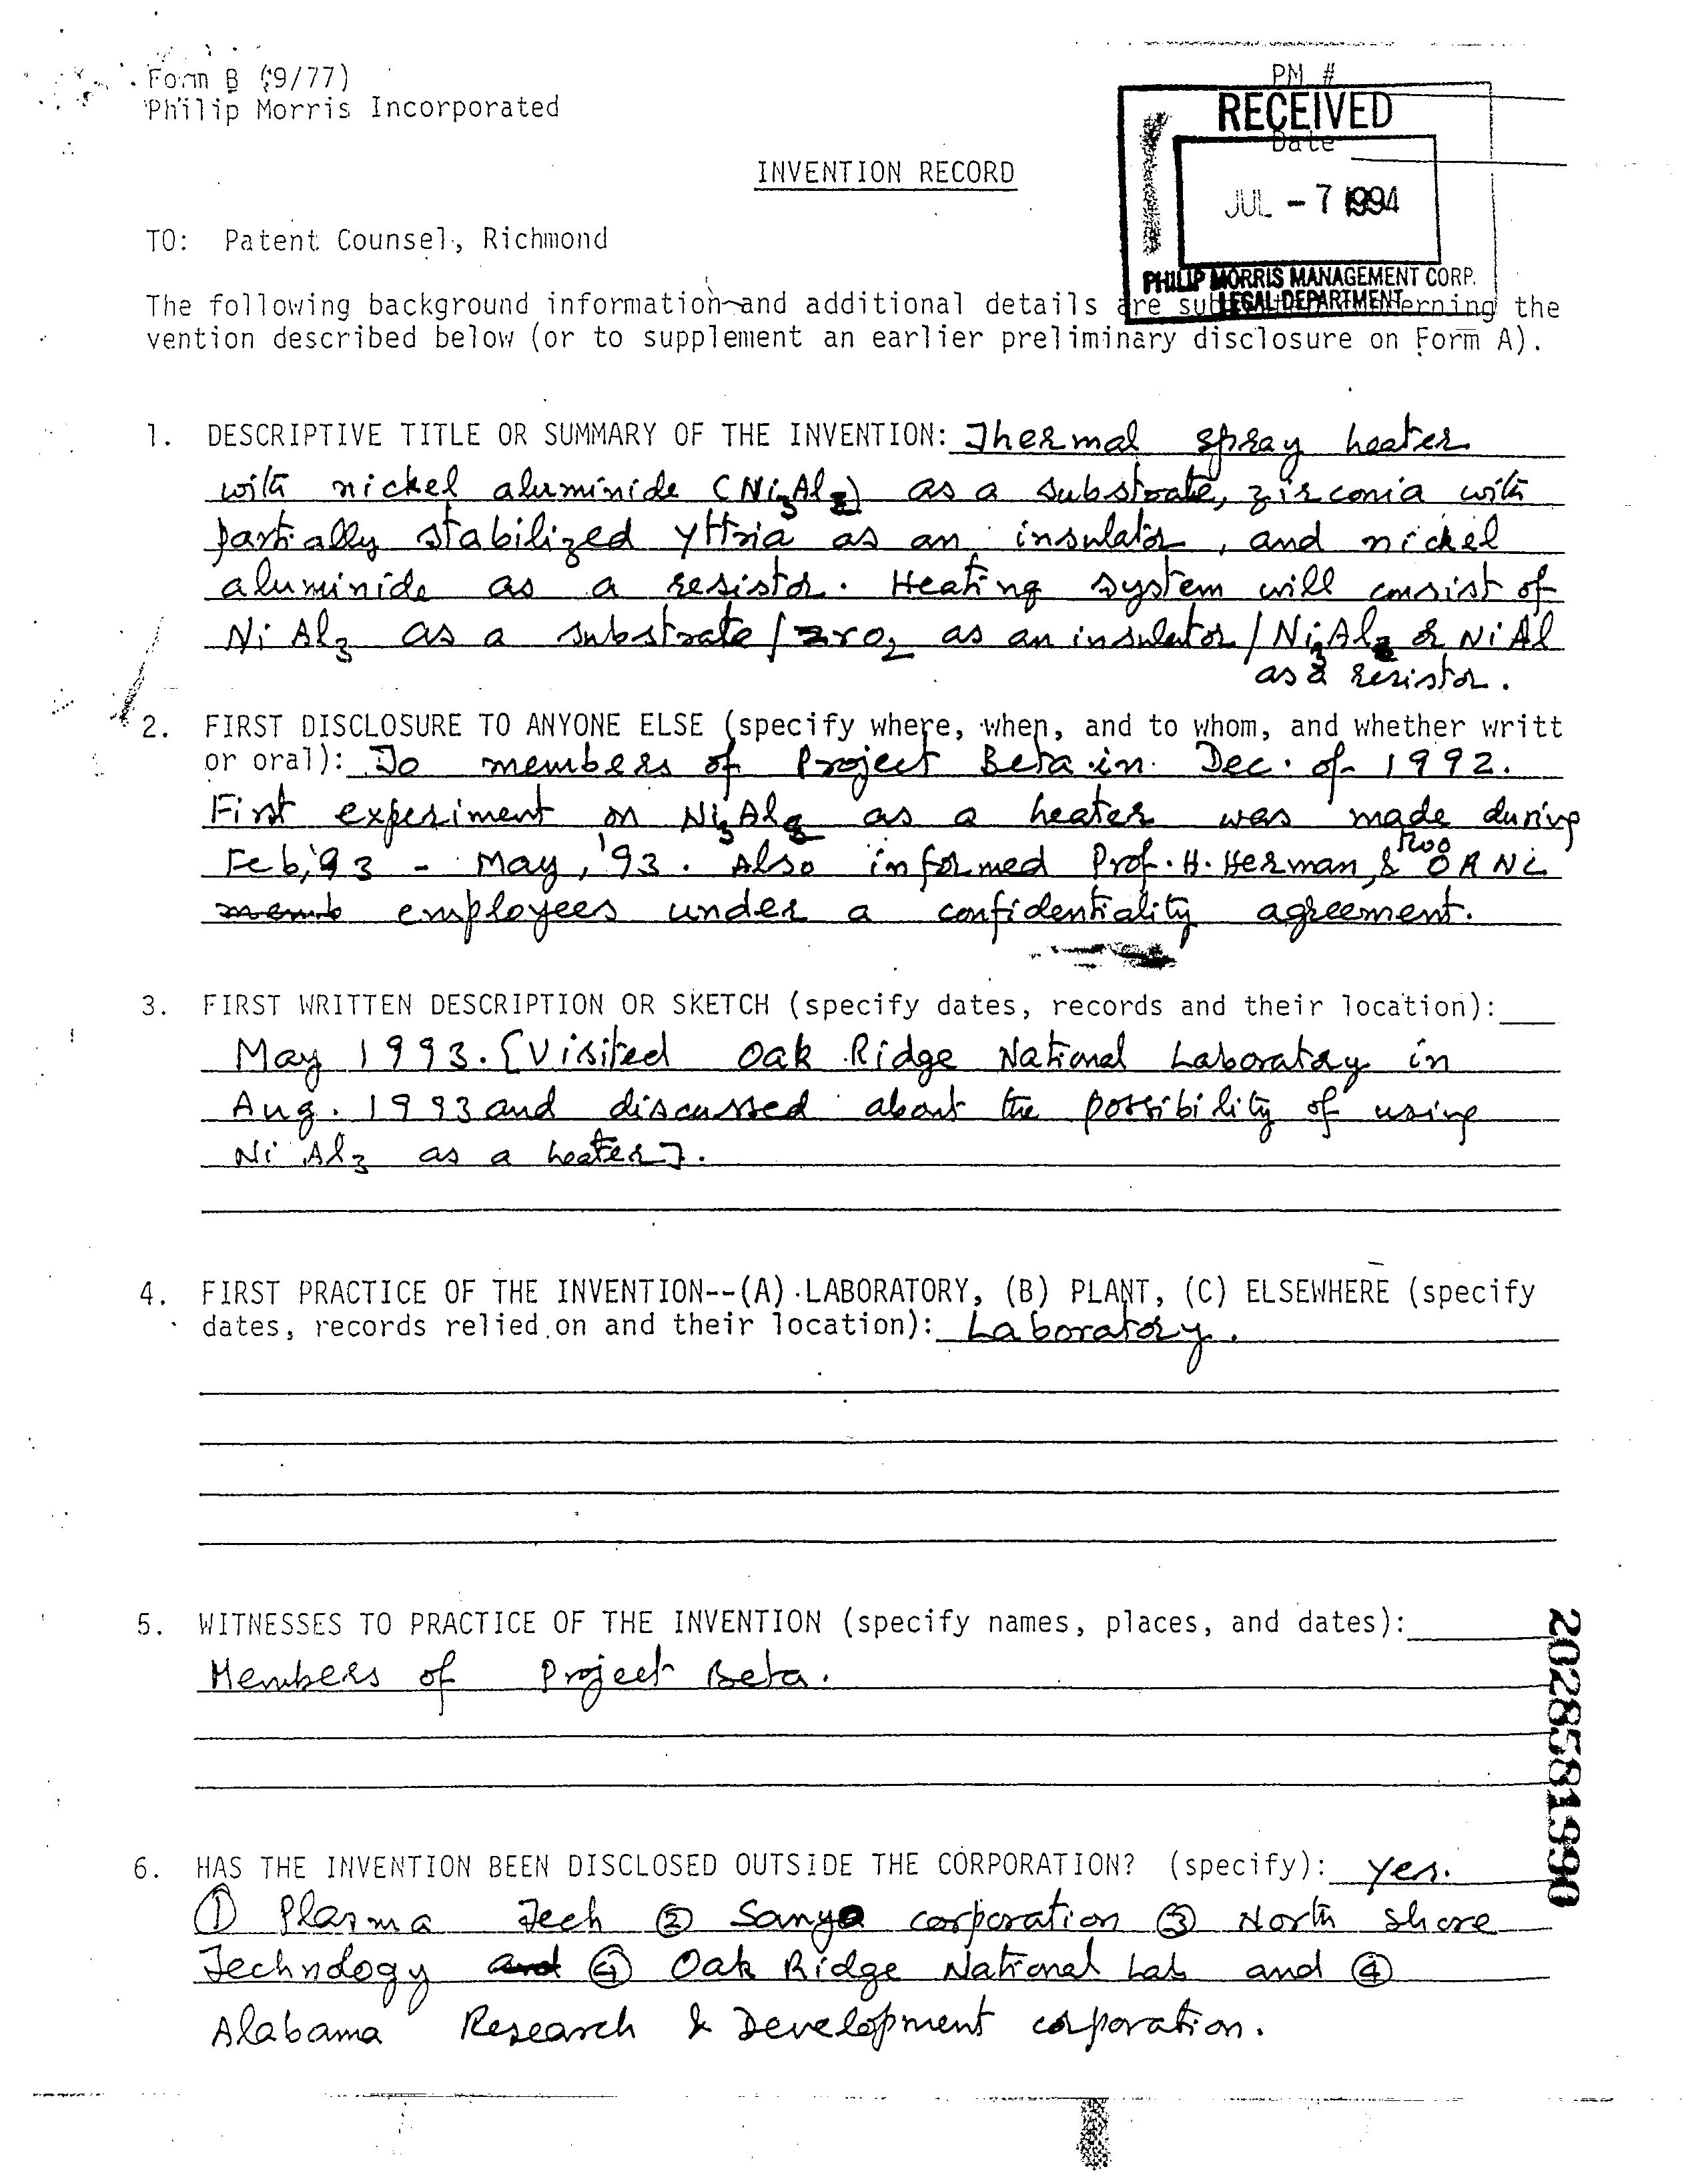 Form B (9/77)
Philip Morris Incorporated
PM #
RECEIVED
Date
JUL - 7 1994
PHILIP MORRIS MANAGEMENT CORP.
LEGAL DEPARTMENT
INVENTION RECORD
TO: Patent Counsel, Richmond
The following background information and additional details are sub erning the
vention described below (or to supplement an earlier preliminary disclosure on Form A).
1. DESCRIPTIVE TITLE OR SUMMARY OF THE INVENTION: Thermal spray heater
with nickel aluminide (Ni3Al) as a substrate, zirconia with
partially stabilized yttria as an insulator, and nickel
aluminide as a resistor. Heating system will consist of
Ni Al3 as a substrate / ZrO2 as an insulator / Ni3Al & NiAl
as a resistor.
2. FIRST DISCLOSURE TO ANYONE ELSE (specify where, when, and to whom, and whether writt
or oral): To members of Project Beta in Dec. of 1992.
First experiment on Ni3Al as a heater was made during
Feb,'93 - May, '93. Also informed Prof. H. Herman, & two ORNL
employees under a confidentiality agreement.
3. FIRST WRITTEN DESCRIPTION OR SKETCH (specify dates, records and their location):
May 1993. [Visited Oak Ridge National Laboratory in
Aug. 1993 and discussed about the possibility of using
Ni Al3 as a heater].
4. FIRST PRACTICE OF THE INVENTION--(A) LABORATORY, (B) PLANT, (C) ELSEWHERE (specify
dates, records relied on and their location): Laboratory.
5. WITNESSES TO PRACTICE OF THE INVENTION (specify names, places, and dates):
Members of Project Beta.
6. HAS THE INVENTION BEEN DISCLOSED OUTSIDE THE CORPORATION? (specify): Yes.
① Plasma Tech ② Sanyo corporation ③ North shore
Technology and ④ Oak Ridge National Lab and ④
Alabama Research & Development corporation.
2028581990